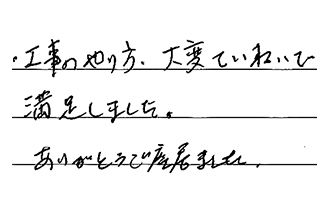 ・工事のやり方、大変ていねいで
満足しました。
ありがとうご座居ました。